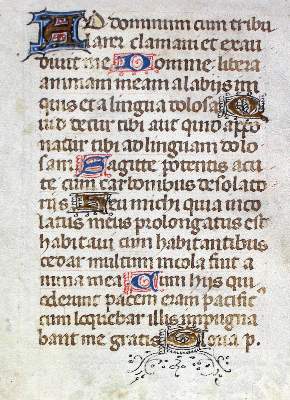 Ad dominum cum tribu
larer clamavi et exau
divit me Domine libera
animam meam a labijs ini
quis et a lingua dolosa Q
uid detur tibi aut quid appo
natur tibi ad linguam dolo
sam Sagitte potentis acu
te cum carbonibus desolato
rijs Heu michi quia inco
latus meus prolongatus est
habitavi cum habitantibus
cedar multum incola fuit a
nima mea Cum hijs qui
oderunt pacem eram pacific
cum loquebar illis impugna
bant me gratis Gloria p.